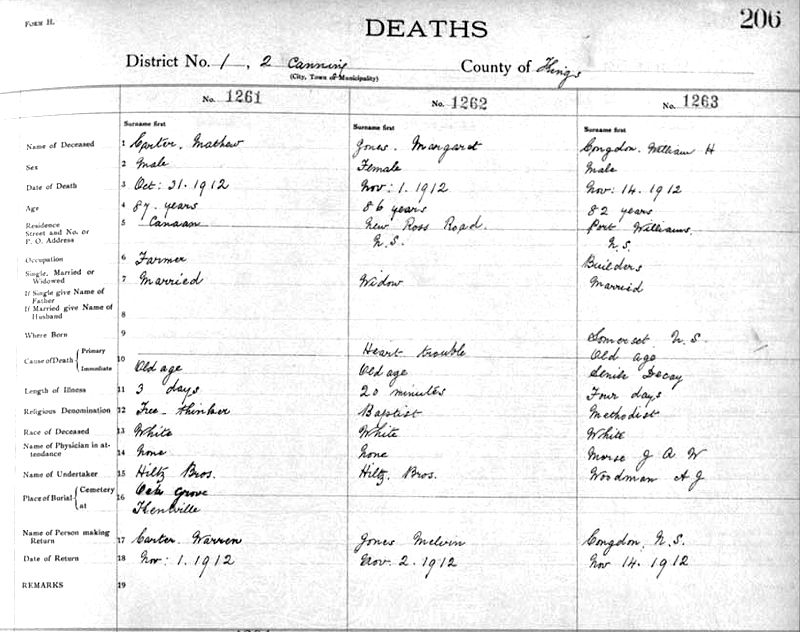 FORM H.
DEATHS
206
District No. 1, 2 Canning County of Kings
(City, Town or Municipality)
No. 1261 No. 1262 No. 1263
Surname first Surname first Surname first
Name of Deceased 1 Carter. Mathew Jones. Margaret Congdon. William H
Sex 2 Male Female Male
Date of Death 3 Oct: 31. 1912 Nov: 1. 1912 Nov: 14. 1912
Age 4 87. years 86 years 82 years
Residence 5 Canaan New Ross Road. Port Williams.
Street and No. or
P. O. Address N.S. N.S.
Occupation 6 Farmer Builders
Single, Married or
Widowed 7 Married Widow Married
If Single give Name of
Father
If Married give Name of
Husband 8
Where Born 9 Somerset N.S.
Cause of Death { Primary Heart trouble Old age
Immediate 10 Old age Old age Senile Decay
Length of Illness 11 3 days 20 minutes Four days
Religious Denomination 12 Free-thinker Baptist Methodist
Race of Deceased 13 White White White
Name of Physician in at-
tendance 14 None None Morse J A W
Name of Undertaker 15 Hiltz Bros. Hiltz. Bros. Woodman A J
Place of Burial { Cemetery 16 Oak Grove
at Kentville
Name of Person making
Return 17 Carter. Warren Jones Melvin Congdon. N.S.
Date of Return 18 Nov: 1. 1912 Nov. 2. 1912 Nov 14. 1912
REMARKS 19